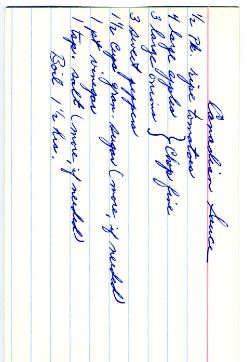 Canadian Sauce
1/2 Pk. ripe tomatoes
4 large apples
3 large onions } Chop fine
3 sweet peppers
1 1/2 cups gran. sugar (more, if needed)
1 pt. vinegar
1 tsp. salt (more, if needed)
Boil 1 1/2 hrs.